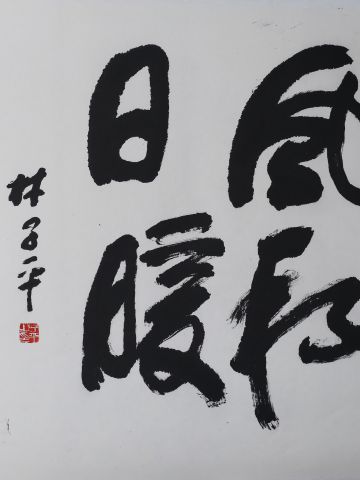 风和
日暖
林子平